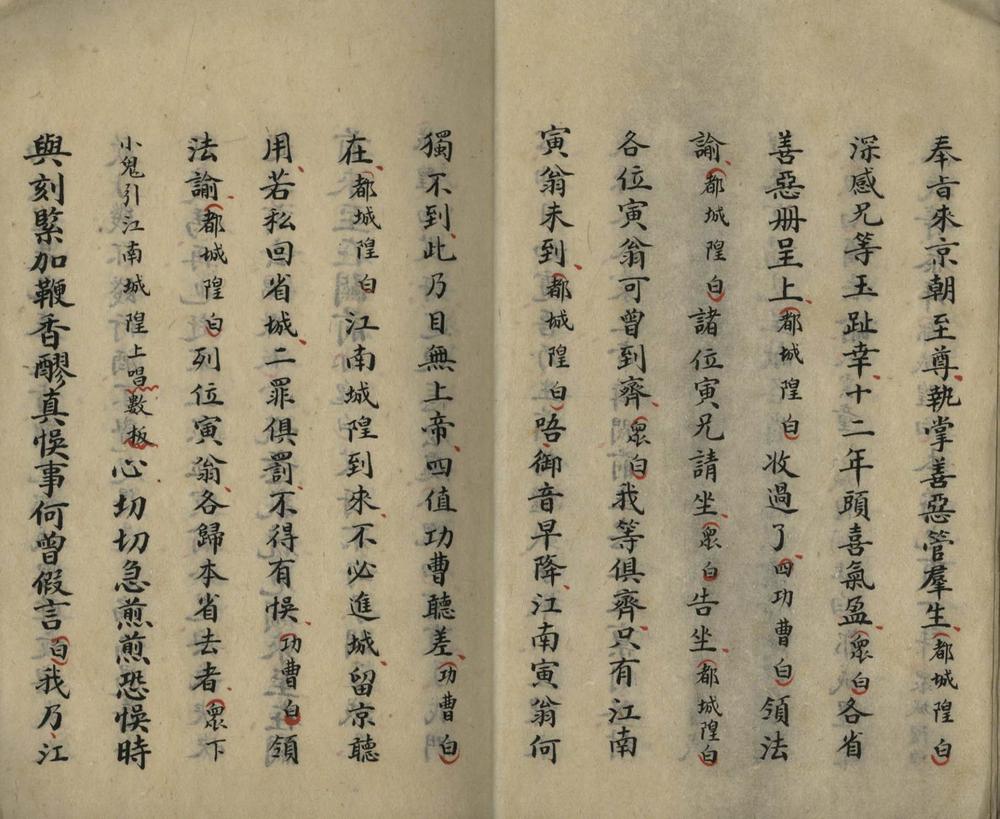 奉旨來京朝至尊執掌善惡管羣生都城隍白
深感兄等玉趾幸十二年頭喜氣盈眾白各省
善惡册呈上都城隍白收過了四功曹白領法
諭都城隍白諸位寅兄請坐眾白告坐都城隍白
各位寅翁可曾到齊眾白我等俱齊只有江南
寅翁未到都城隍白唔御音早降江南寅翁何
獨不到此乃目無上帝四值功曹聽差功曹白
在都城隍白江南城隍到來不必進城留京聽
用若私回省城二罪俱罰不得有悞功曹白領
法諭都城隍白列位寅翁各歸本省去者眾下
小鬼引江南城隍上唱數板心切切急煎煎恐悞時
與刻緊加鞭香醪真悞事何曾假言白我乃江